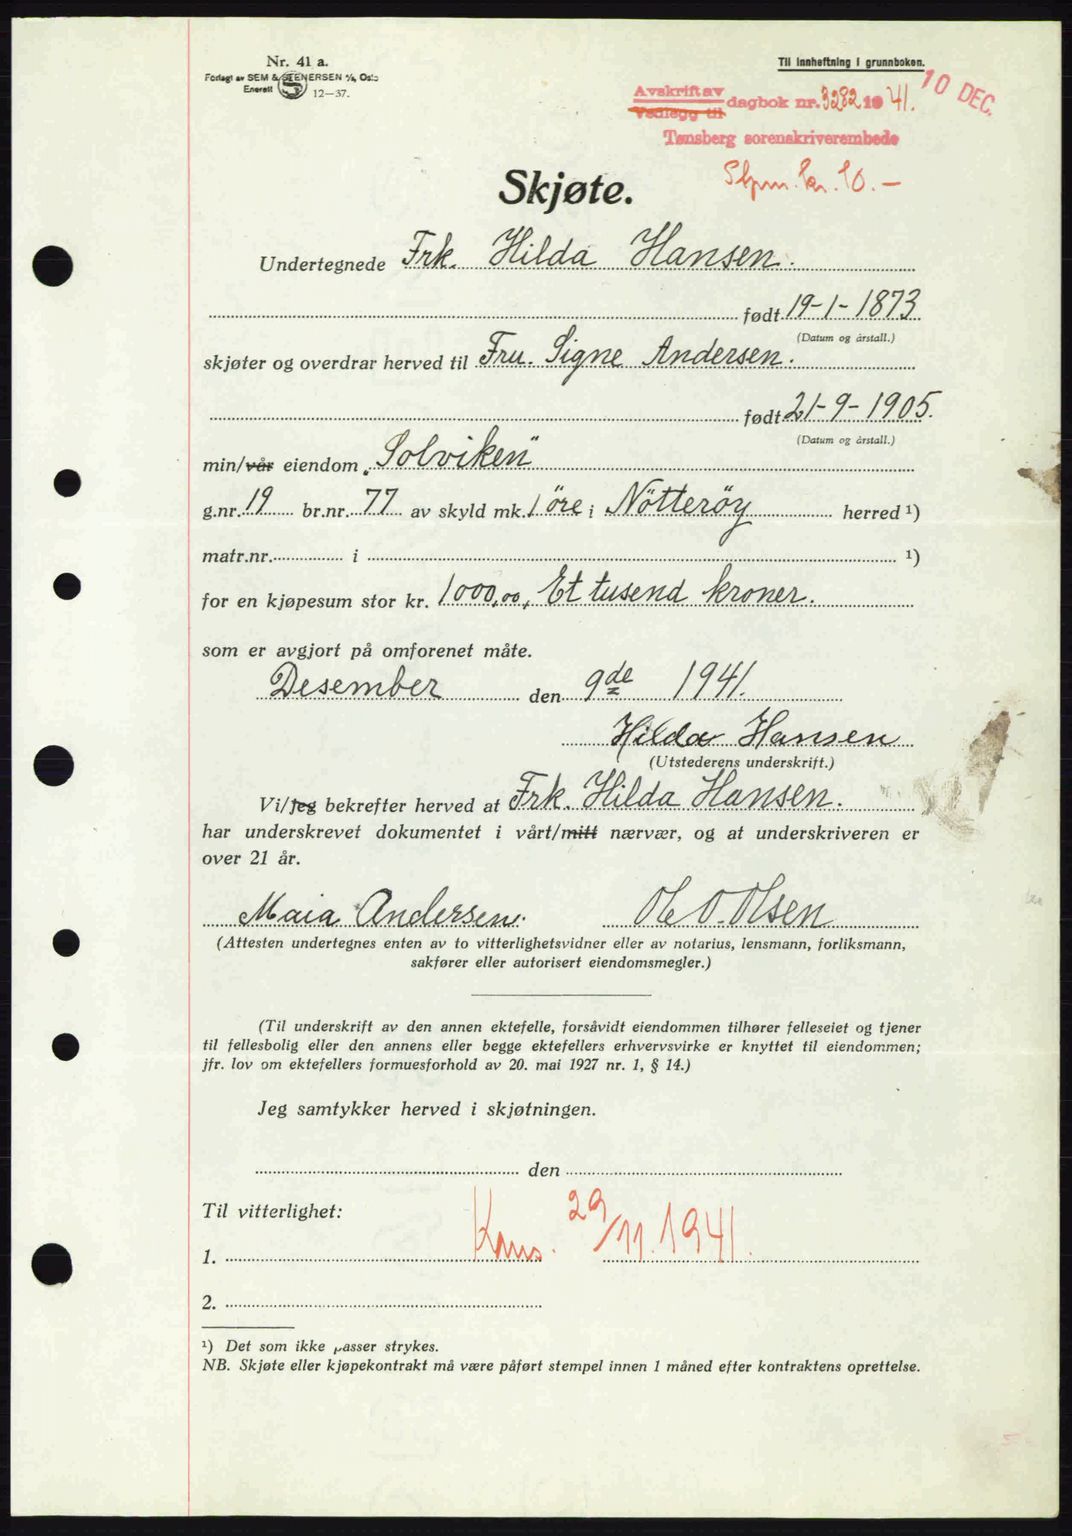 Nr. 41 a.
Forlagt av SEM & STENERSEN A/S, Oslo
Enerett
12-37.
Til innheftning i grunnboken.
10 DEC.
Avskrift av
Vedlegg til
dagbok nr. 3282 1941.
Tønsberg sorenskriverembede
Stpm. kr. 10.-
Skjøte.
Undertegnede Frk. Hilda Hansen.
født 19-1-1873
(Datum og årstall.)
skjøter og overdrar herved til Fru. Signe Andersen.
født 21-9-1905.
(Datum og årstall.)
min/vår eiendom „Solviken"
g.nr. 19 br.nr. 77 av skyld mk. 1 öre i Nötteröy herred ¹)
matr.nr. i ¹)
for en kjøpesum stor kr. 1000,00, Et tusend kroner.
som er avgjort på omforenet måte.
Desember den 9de 1941.
Hilda Hansen
(Utstederens underskrift.)
Vi/jeg bekrefter herved at Frk. Hilda Hansen.
har underskrevet dokumentet i vårt/mitt nærvær, og at underskriveren er
over 21 år.
Maia Andersen. Ole O. Olsen
(Attesten undertegnes enten av to vitterlighetsvidner eller av notarius, lensmann, forliksmann,
sakfører eller autorisert eiendomsmegler.)
(Til underskrift av den annen ektefelle, forsåvidt eiendommen tilhører felleseiet og tjener
til fellesbolig eller den annens eller begge ektefellers erhvervsvirke er knyttet til eiendommen;
jfr. lov om ektefellers formuesforhold av 20. mai 1927 nr. 1, § 14.)
Jeg samtykker herved i skjøtningen.
den
Til vitterlighet:
Kons. 29/11.1941.
1.
2.
¹) Det som ikke passer strykes.
NB. Skjøte eller kjøpekontrakt må være påført stempel innen 1 måned efter kontraktens oprettelse.